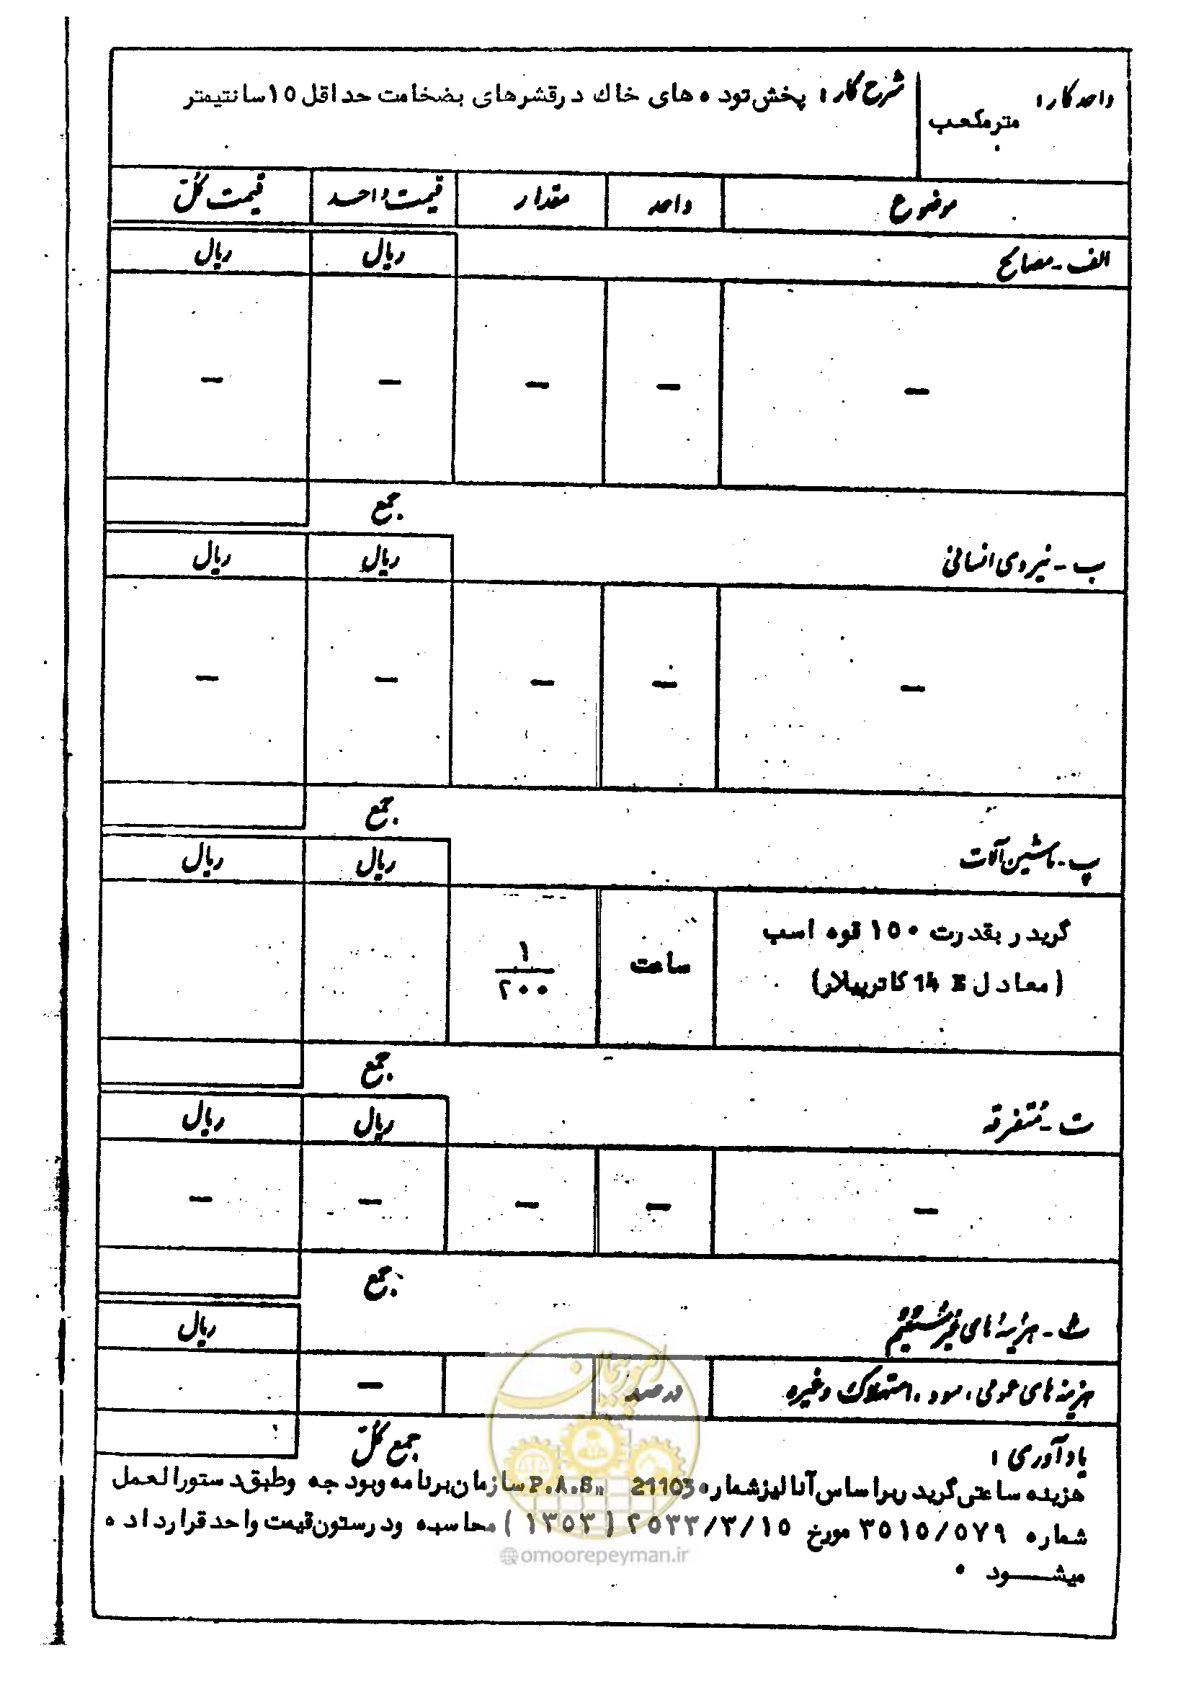 واحد کار :
مترمکعب
شرح کار : پخش توده های خاک در قشرهای بضخامت حداقل ۱۵ سانتیمتر
موضوع واحد مقدار قیمت واحد قیمت کل
الف - مصالح ریال ریال
— — — — —
جمع
ب - نیروی انسانی ریال ریال
— — — — —
جمع
پ - ماشین آلات ریال ریال
گریدر بقدرت ۱۵۰ قوه اسب
(معادل 14 E کاترپیلار)
ساعت
۱
۲۰۰
جمع
ت - متفرقه ریال ریال
— — — — —
جمع
ث - هزینه های غیرمستقیم ریال
هزینه های عمومی ، سود ، استهلاک وغیره درصد —
جمع کل
یادآوری :
هزینه ساعتی گریدر براساس آنالیز شماره 21103 "P.A.S" سازمان برنامه وبودجه وطبق دستورالعمل
شماره ۳۵۱۵/۵۷۹ مورخ ۲۵۳۳/۳/۱۵ (۱۳۵۳) محاسبه ودرستون قیمت واحد قرارداده
میشود .
امور پیمان
@omoorepeyman.ir